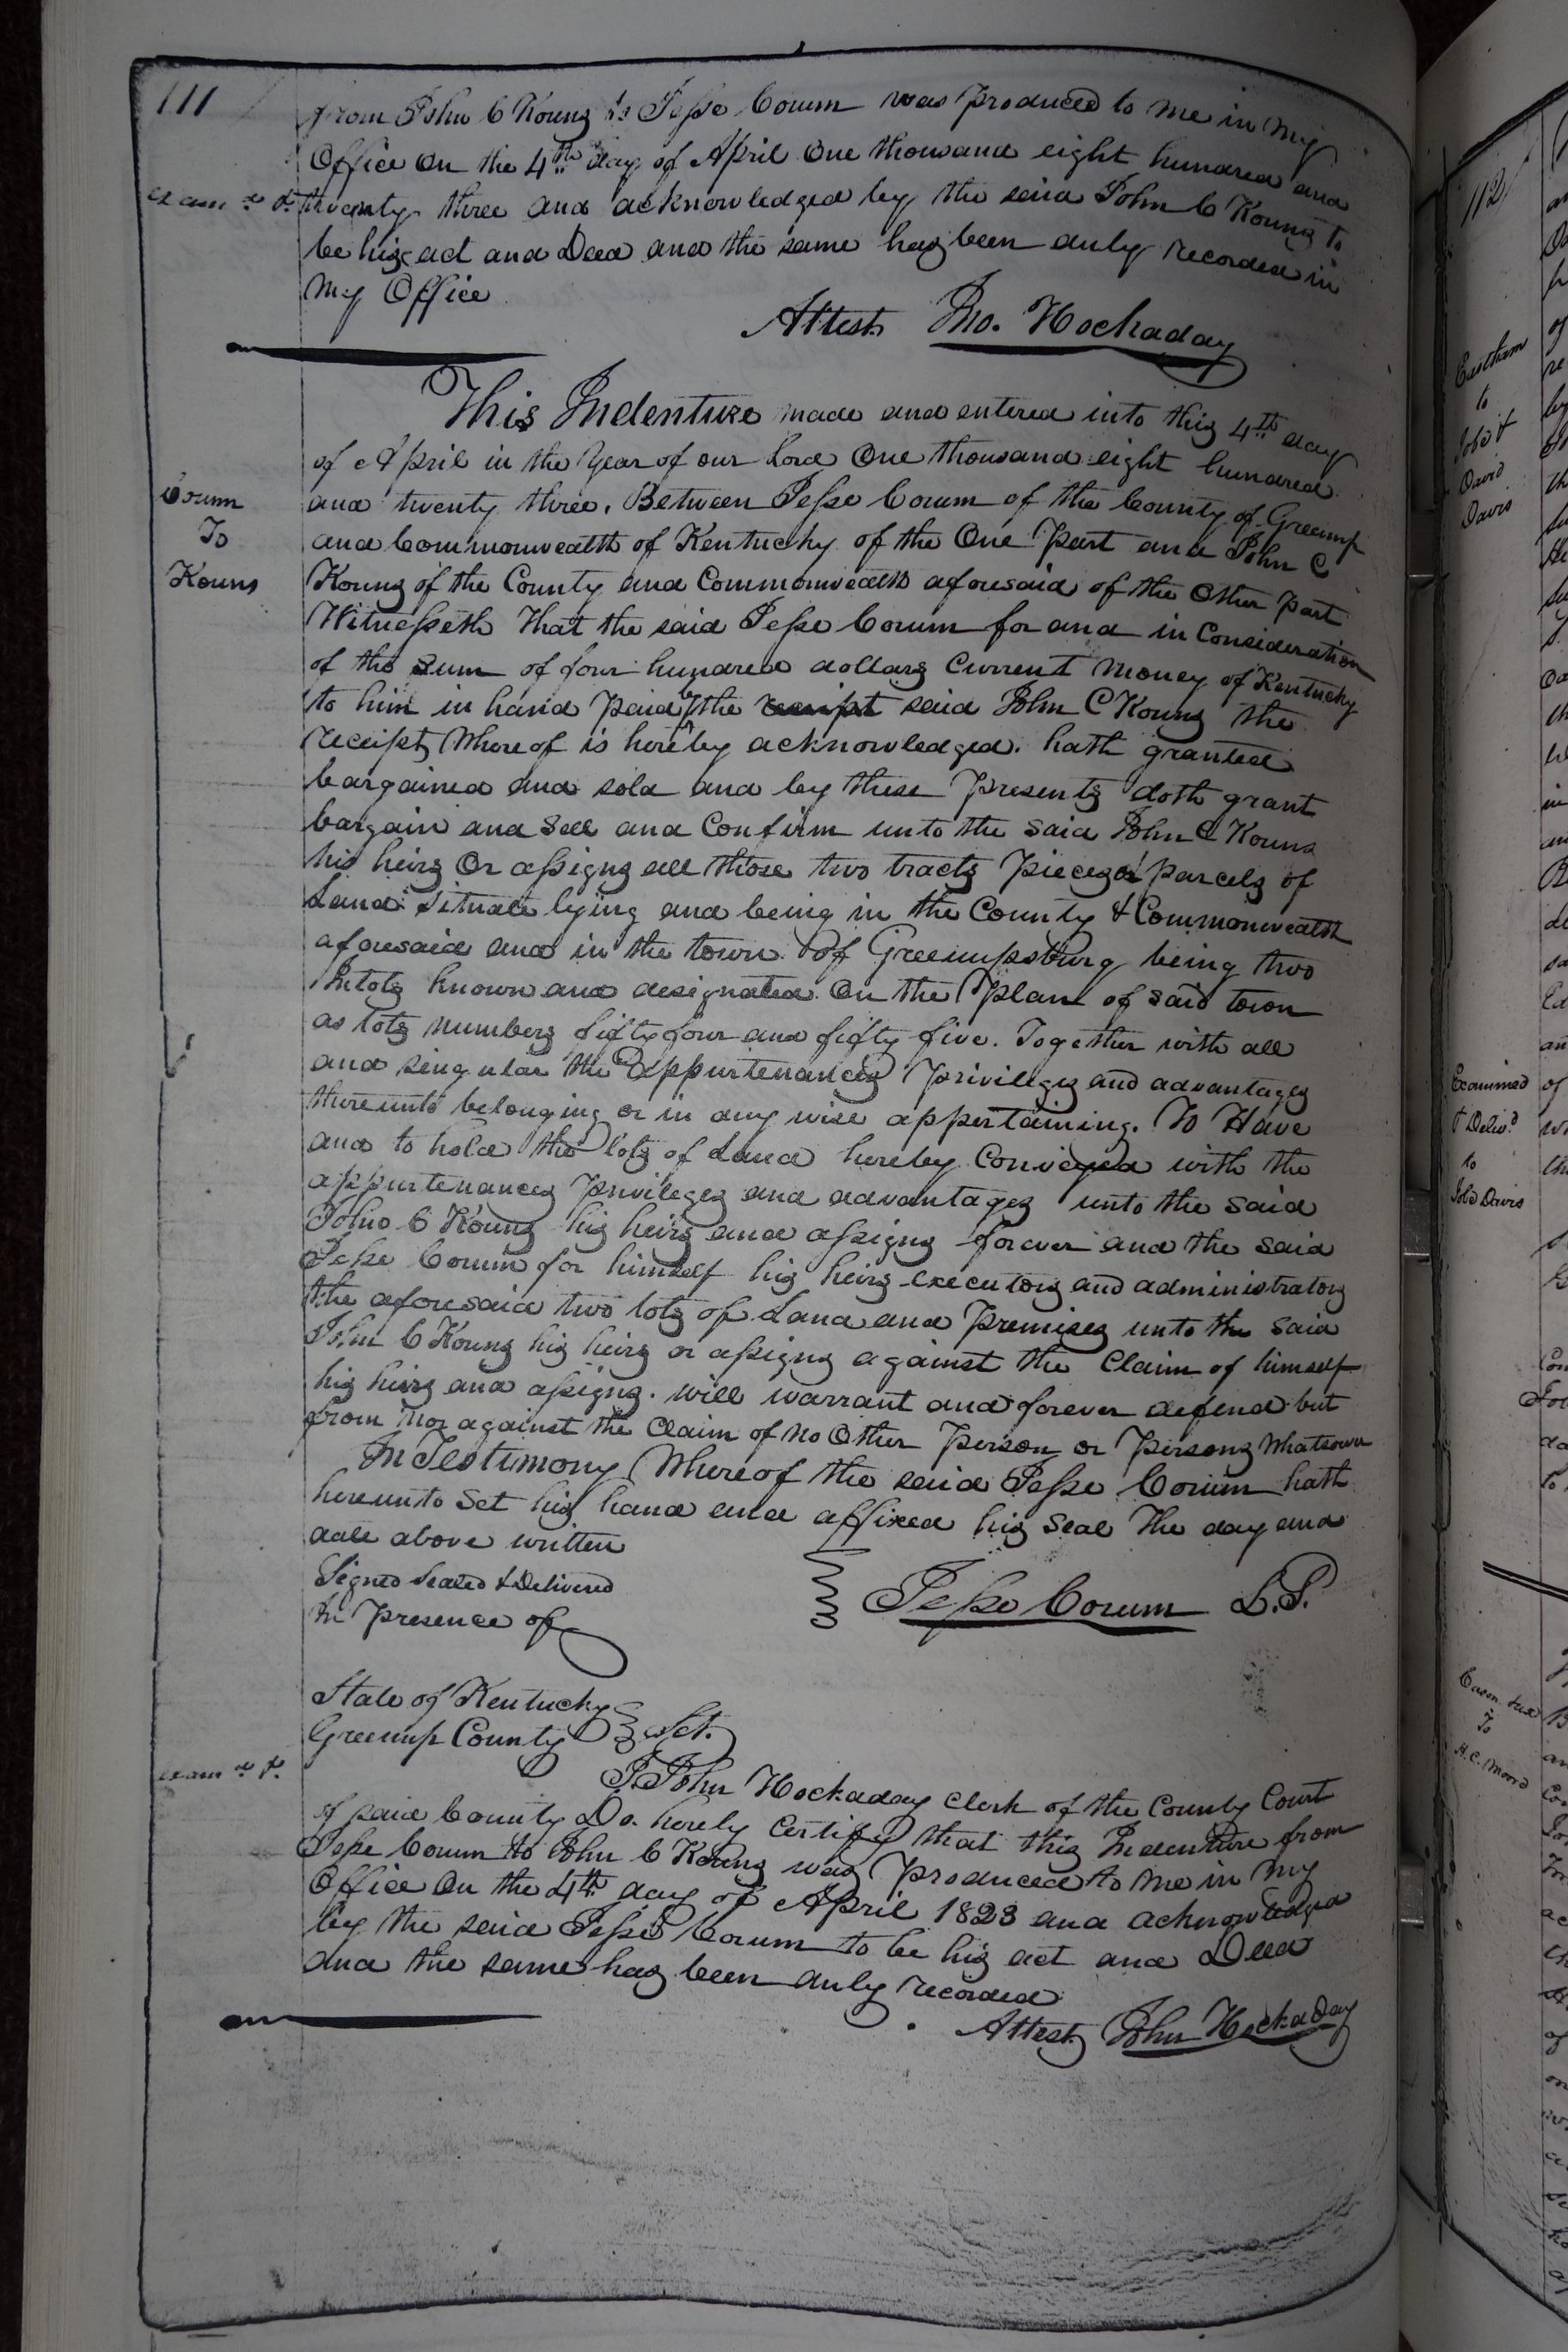 111
from John C Kouns to Jesse Corum was produced to me in my
Office On the 4th day of April One thousand eight hundred and
exam.d
twenty three and acknowledged by the said John C Kouns to
be his act and Deed and the same has been duly recorded in
My Office
Attest Jno. Hockaday
This Indenture made and entered into this 4th day
of April in the Year of our Lord One thousand eight hundred
and twenty three. Between Jesse Corum of the County of Greenup
and Commonwealth of Kentucky of the One Part and John C
Kouns of the County and Commonwealth aforesaid of the Other part
Witnesseth That the said Jesse Corum for and in Consideration
of the Sum of four hundred dollars Current Money of Kentucky
to him in hand paid by the receipt said John C Kouns the
receipt Whereof is hereby acknowledged. hath granted
bargained and sold and by these Presents doth grant
bargain and Sell and Confirm unto the said John C Kouns
his heirs Or assigns all those two tracts pieces or parcels of
Land Situate lying and being in the County & Commonwealth
aforesaid and in the town of Greenupsburg being two
Inlots known and designated On the Plan of said town
as lots numbers fifty four and fifty five. Together with all
and singular the Appurtenances privileges and advantages
thereunto belonging or in any wise appertaining. To Have
and to hold the lots of Land hereby Conveyed with the
appurtenances privileges and advantages unto the said
John C Kouns his heirs and assigns forever and the said
Jesse Corum for himself his heirs executors and administrators
the aforesaid two lots of Land and Premises unto the said
John C Kouns his heirs or assigns against the Claim of himself
his heirs and assigns. will warrant and forever defend but
from nor against the Claim of no Other Person or Persons Whatsoever
In Testimony Whereof the said Jesse Corum hath
hereunto Set his hand and affixed his Seal The day and
date above written
Signed Sealed & Delivered
In Presence of
Jesse Corum L.S.
State of Kentucky
Greenup County Sct.
exam.d
I John Hockaday Clerk of the County Court
of said County Do hereby Certify that this Indenture from
Jesse Corum to John C Kouns was Produced to me in my
Office On the 4th day of April 1823 and acknowledged
by the said Jesse Corum to be his act and Deed
and the same has been duly recorded
Attest John Hockaday
Corum
To
Kouns
112
Eastham
to
Job &
David
Davis
Examined
& Deliv.d
to
Job Davis
To
H. C. Moore